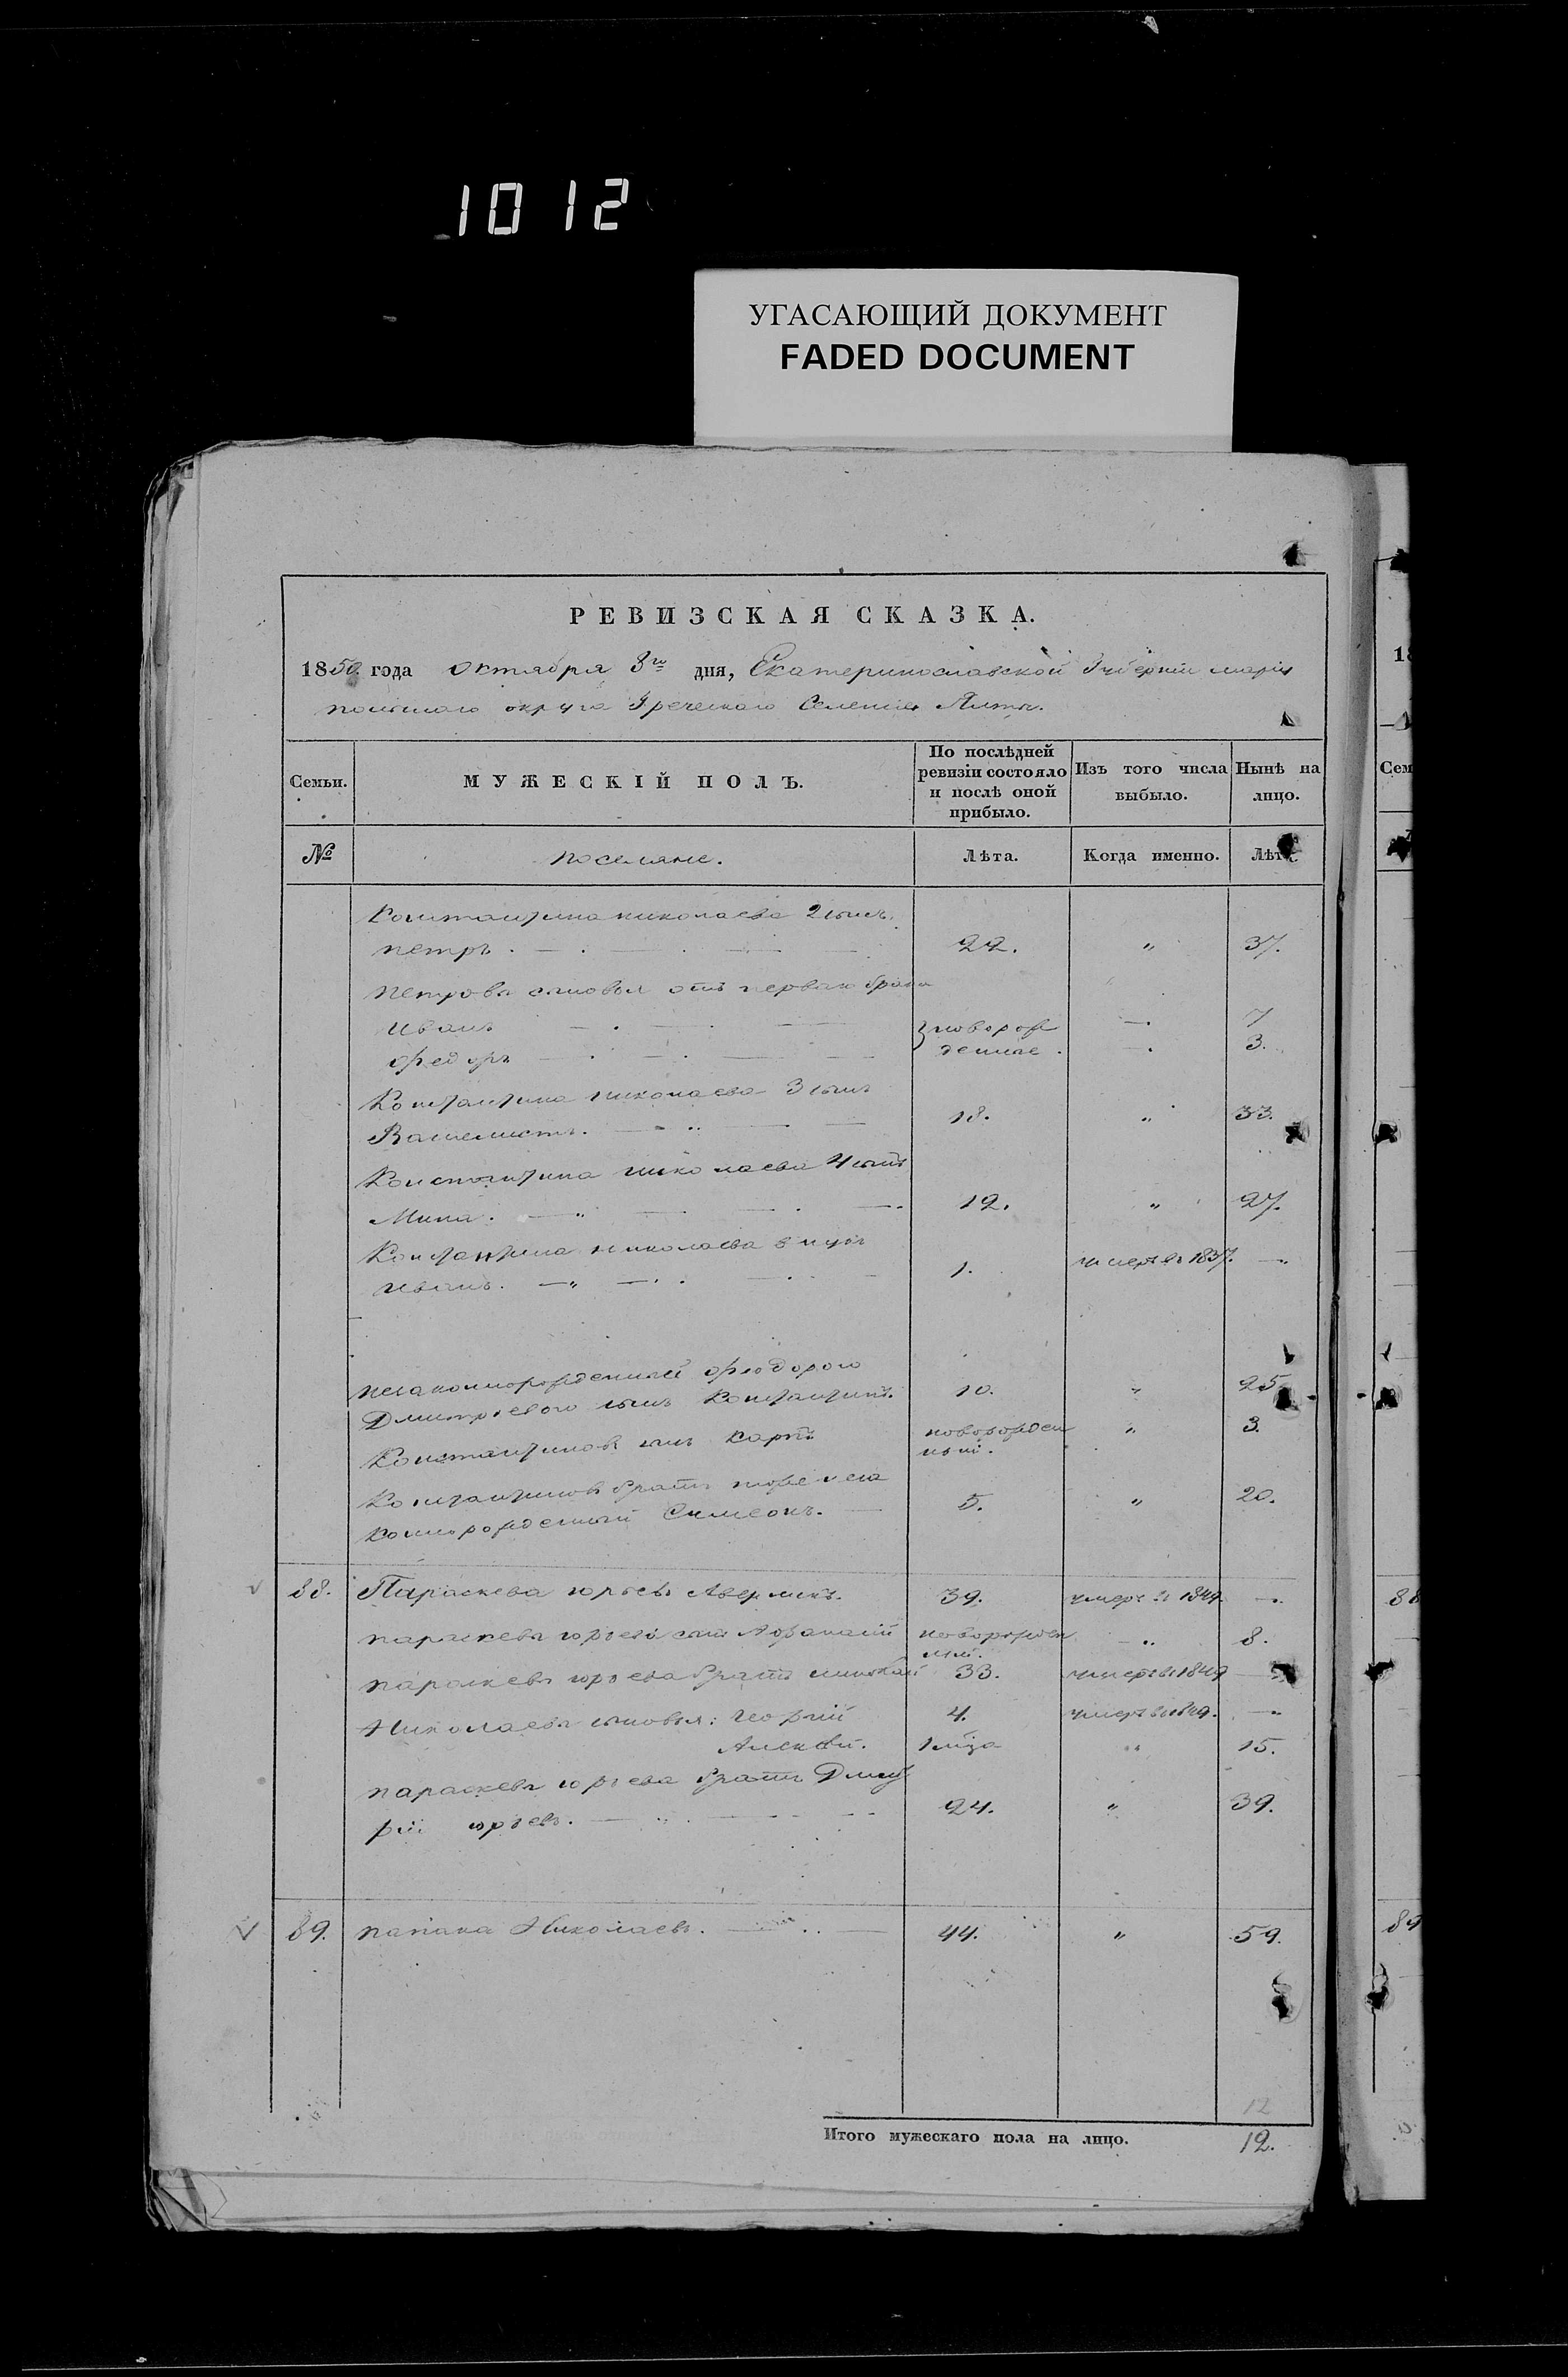 1012
УГАСАЮЩИЙ ДОКУМЕНТ
FADED DOCUMENT
РЕВИЗСКАЯ СКАЗКА.
1850 года Октября 3го дня, Екатеринославской Губернiи мариу
польскаго округа Греческаго Селенiя Ялты.
Семьи. МУЖЕСКIЙ ПОЛЪ. По послѣдней ревизiи состояло и послѣ оной прибыло. Изъ того числа выбыло. Нынѣ на лицо.
№ поселяне. Лѣта. Когда именно. Лѣта.
Константина николаева 2 сынъ
петръ. 22. " 37.
петровы сыновья отъ перваго брака
иванъ новорож 7
федоръ денные. 3.
Константина николаева 3 сынъ
18. " 33.
Константина николаева 4 сынъ
Мина. 12. " 27.
Константина николаева внукъ
иванъ. 1. умеръ въ 1837.
незаконнорожденный
Дмитрiевого сынъ Константинъ. 10. " 25
Константиновъ сынъ Карпъ новорожден " 3.
ный.
Константиновъ братъ тоже неза
коннорожденный Симеонъ. 5. " 20.
88. Параскева юрьевъ 39. умеръ въ 1849.
параскева юрьева сынъ Афанасiй новорожден 8.
ный.
параскева юрьева братъ николай 33. умеръ въ 1849
Николаевы сыновья: Георгiй 4. умеръ въ 1849.
Алексѣй. 1 мца " 15.
параскева юрьева братъ Дмит
рiй юрьевъ. 24. " 39.
89. папана Николаевъ. 44. " 59.
12
Итого мужескаго пола на лицо. 12.
18
Сем
88
89